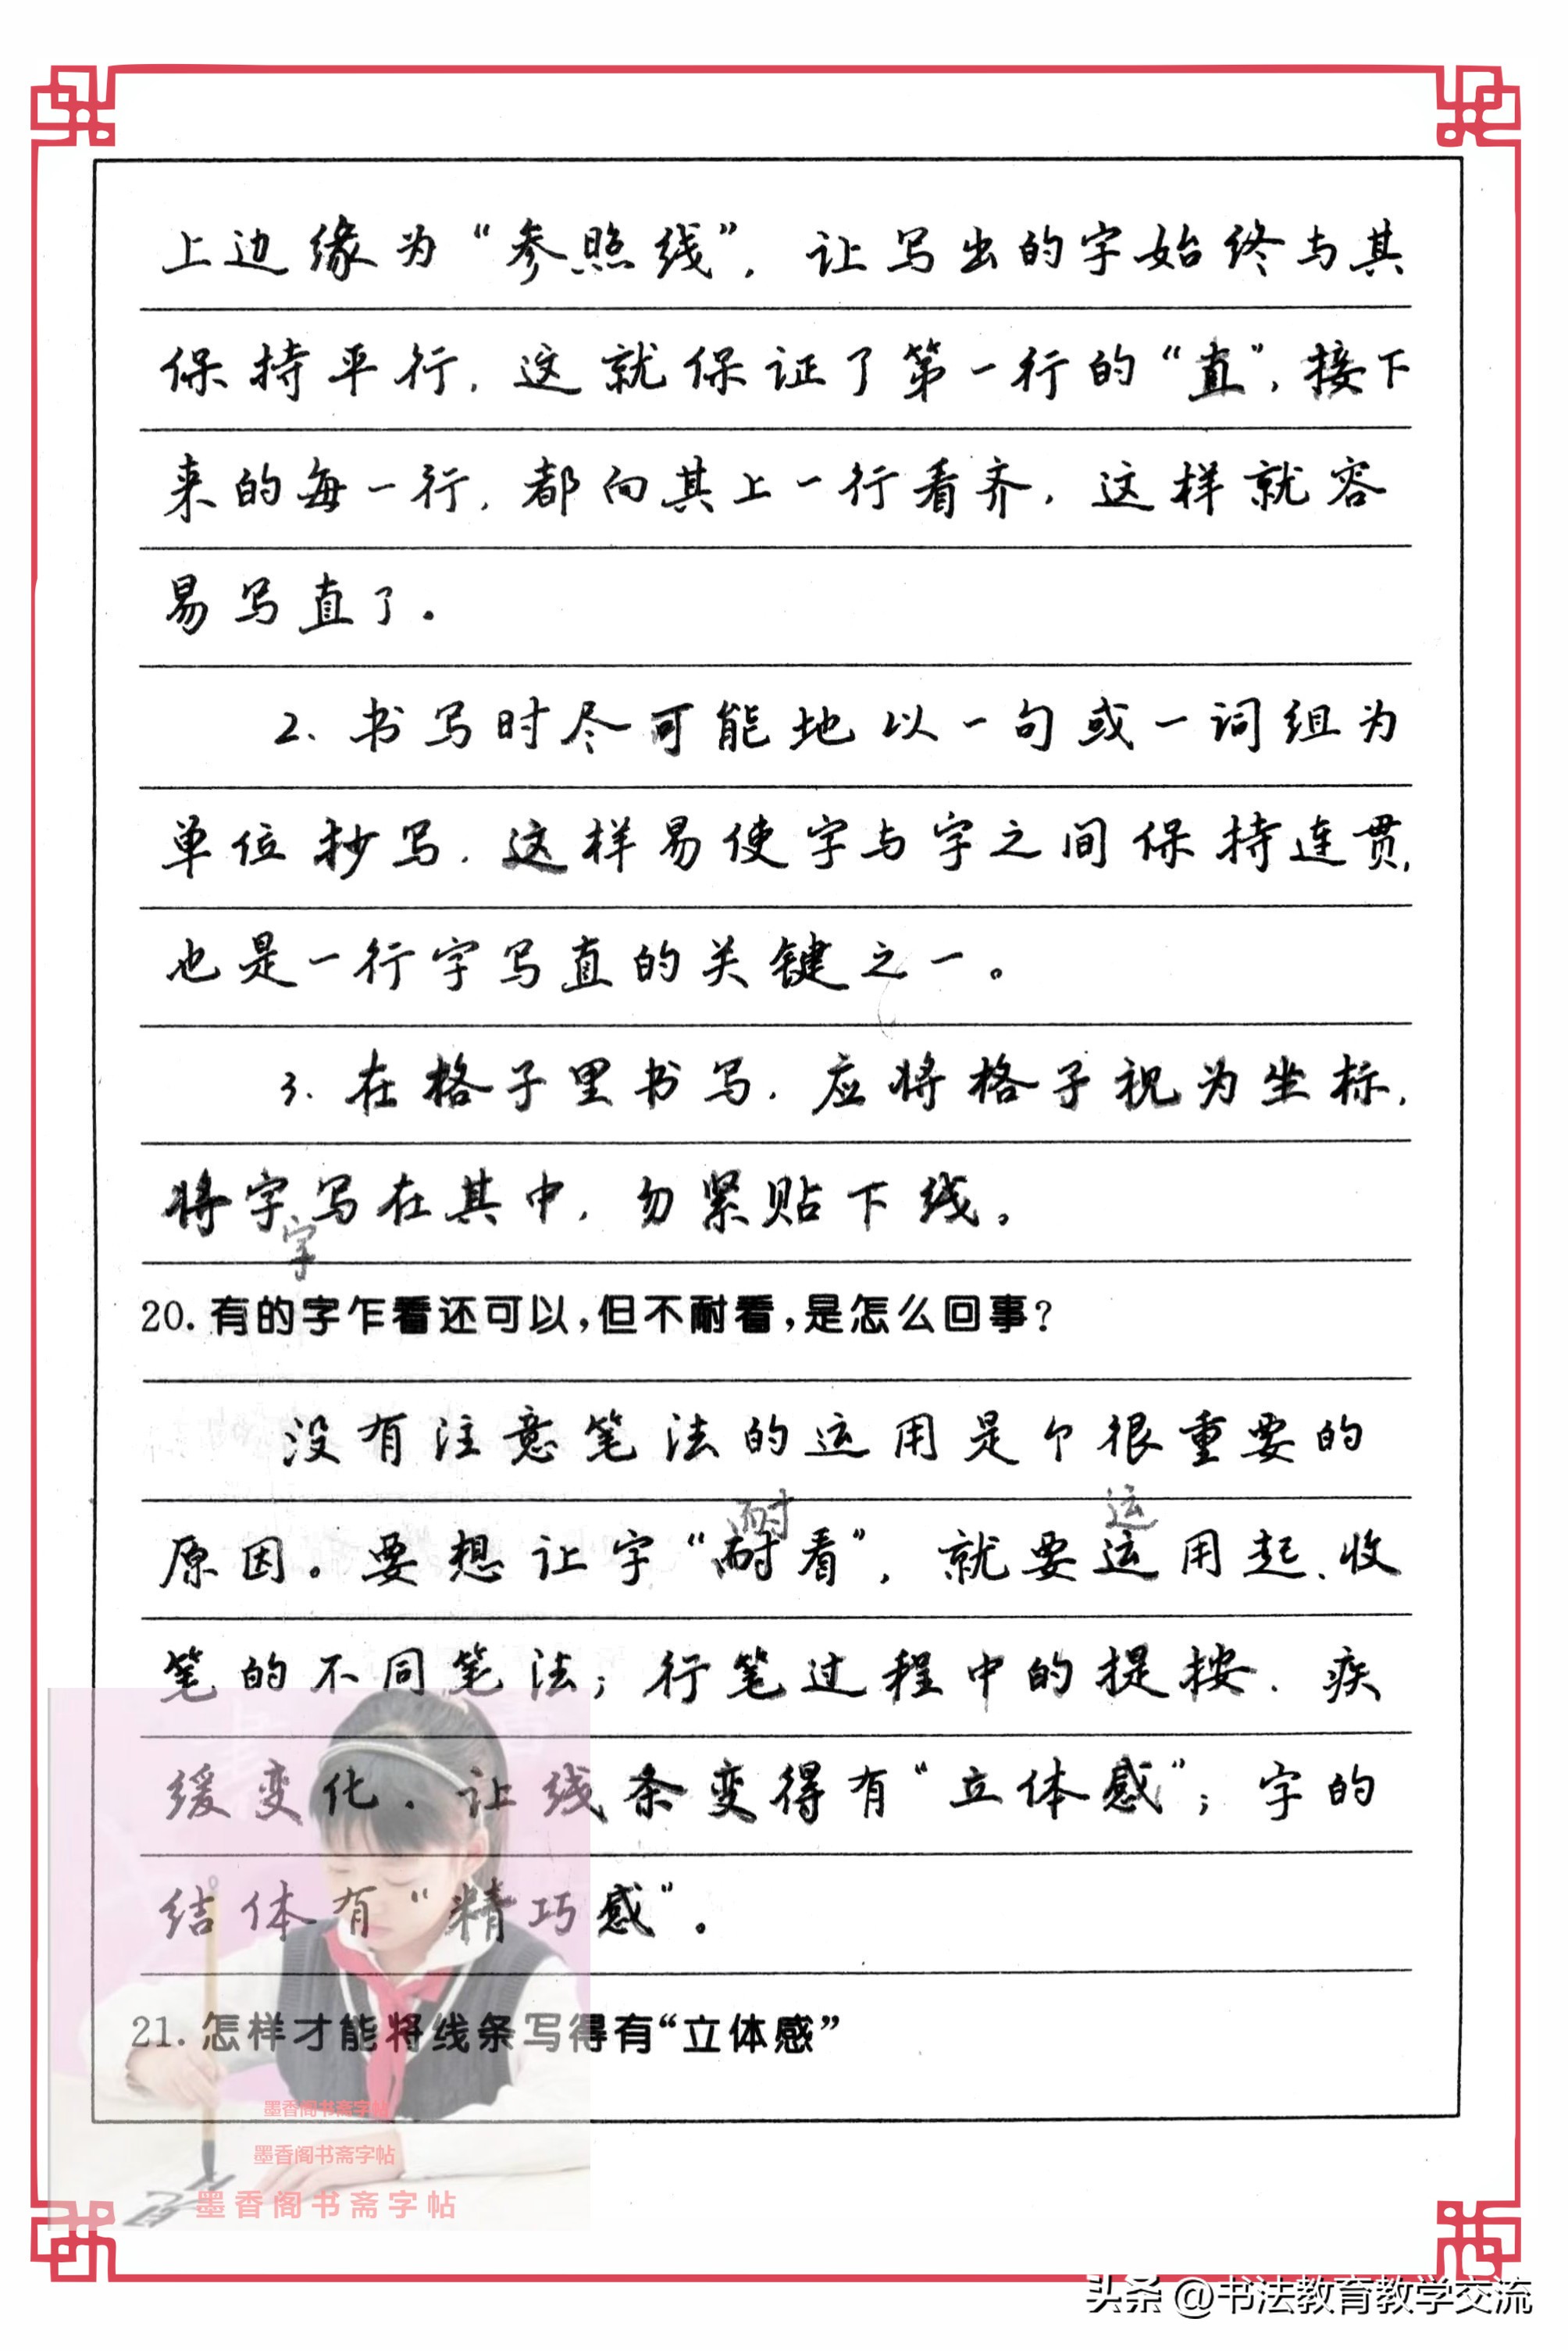 上边缘为“参照线”，让写出的字始终与其
保持平行，这就保证了第一行的“直”，接下
来的每一行，都向其上一行看齐，这样就容
易写直了。
2、书写时尽可能地以一句或一词组为
单位抄写，这样易使字与字之间保持连贯，
也是一行字写直的关键之一。
3、在格子里书写，应将格子视为坐标，
将字写在其中，勿紧贴下线。
字
20.有的字乍看还可以,但不耐看,是怎么回事?
没有注意笔法的运用是个很重要的
耐 运
原因。要想让字“耐看”，就要运用起、收
笔的不同笔法；行笔过程中的提按、疾
缓变化，让线条变得有“立体感”；字的
结体有“精巧感”。
21.怎样才能将线条写得有“立体感”
墨香阁书斋字帖
墨香阁书斋字帖
墨香阁书斋字帖
头条 @书法教育教学交流